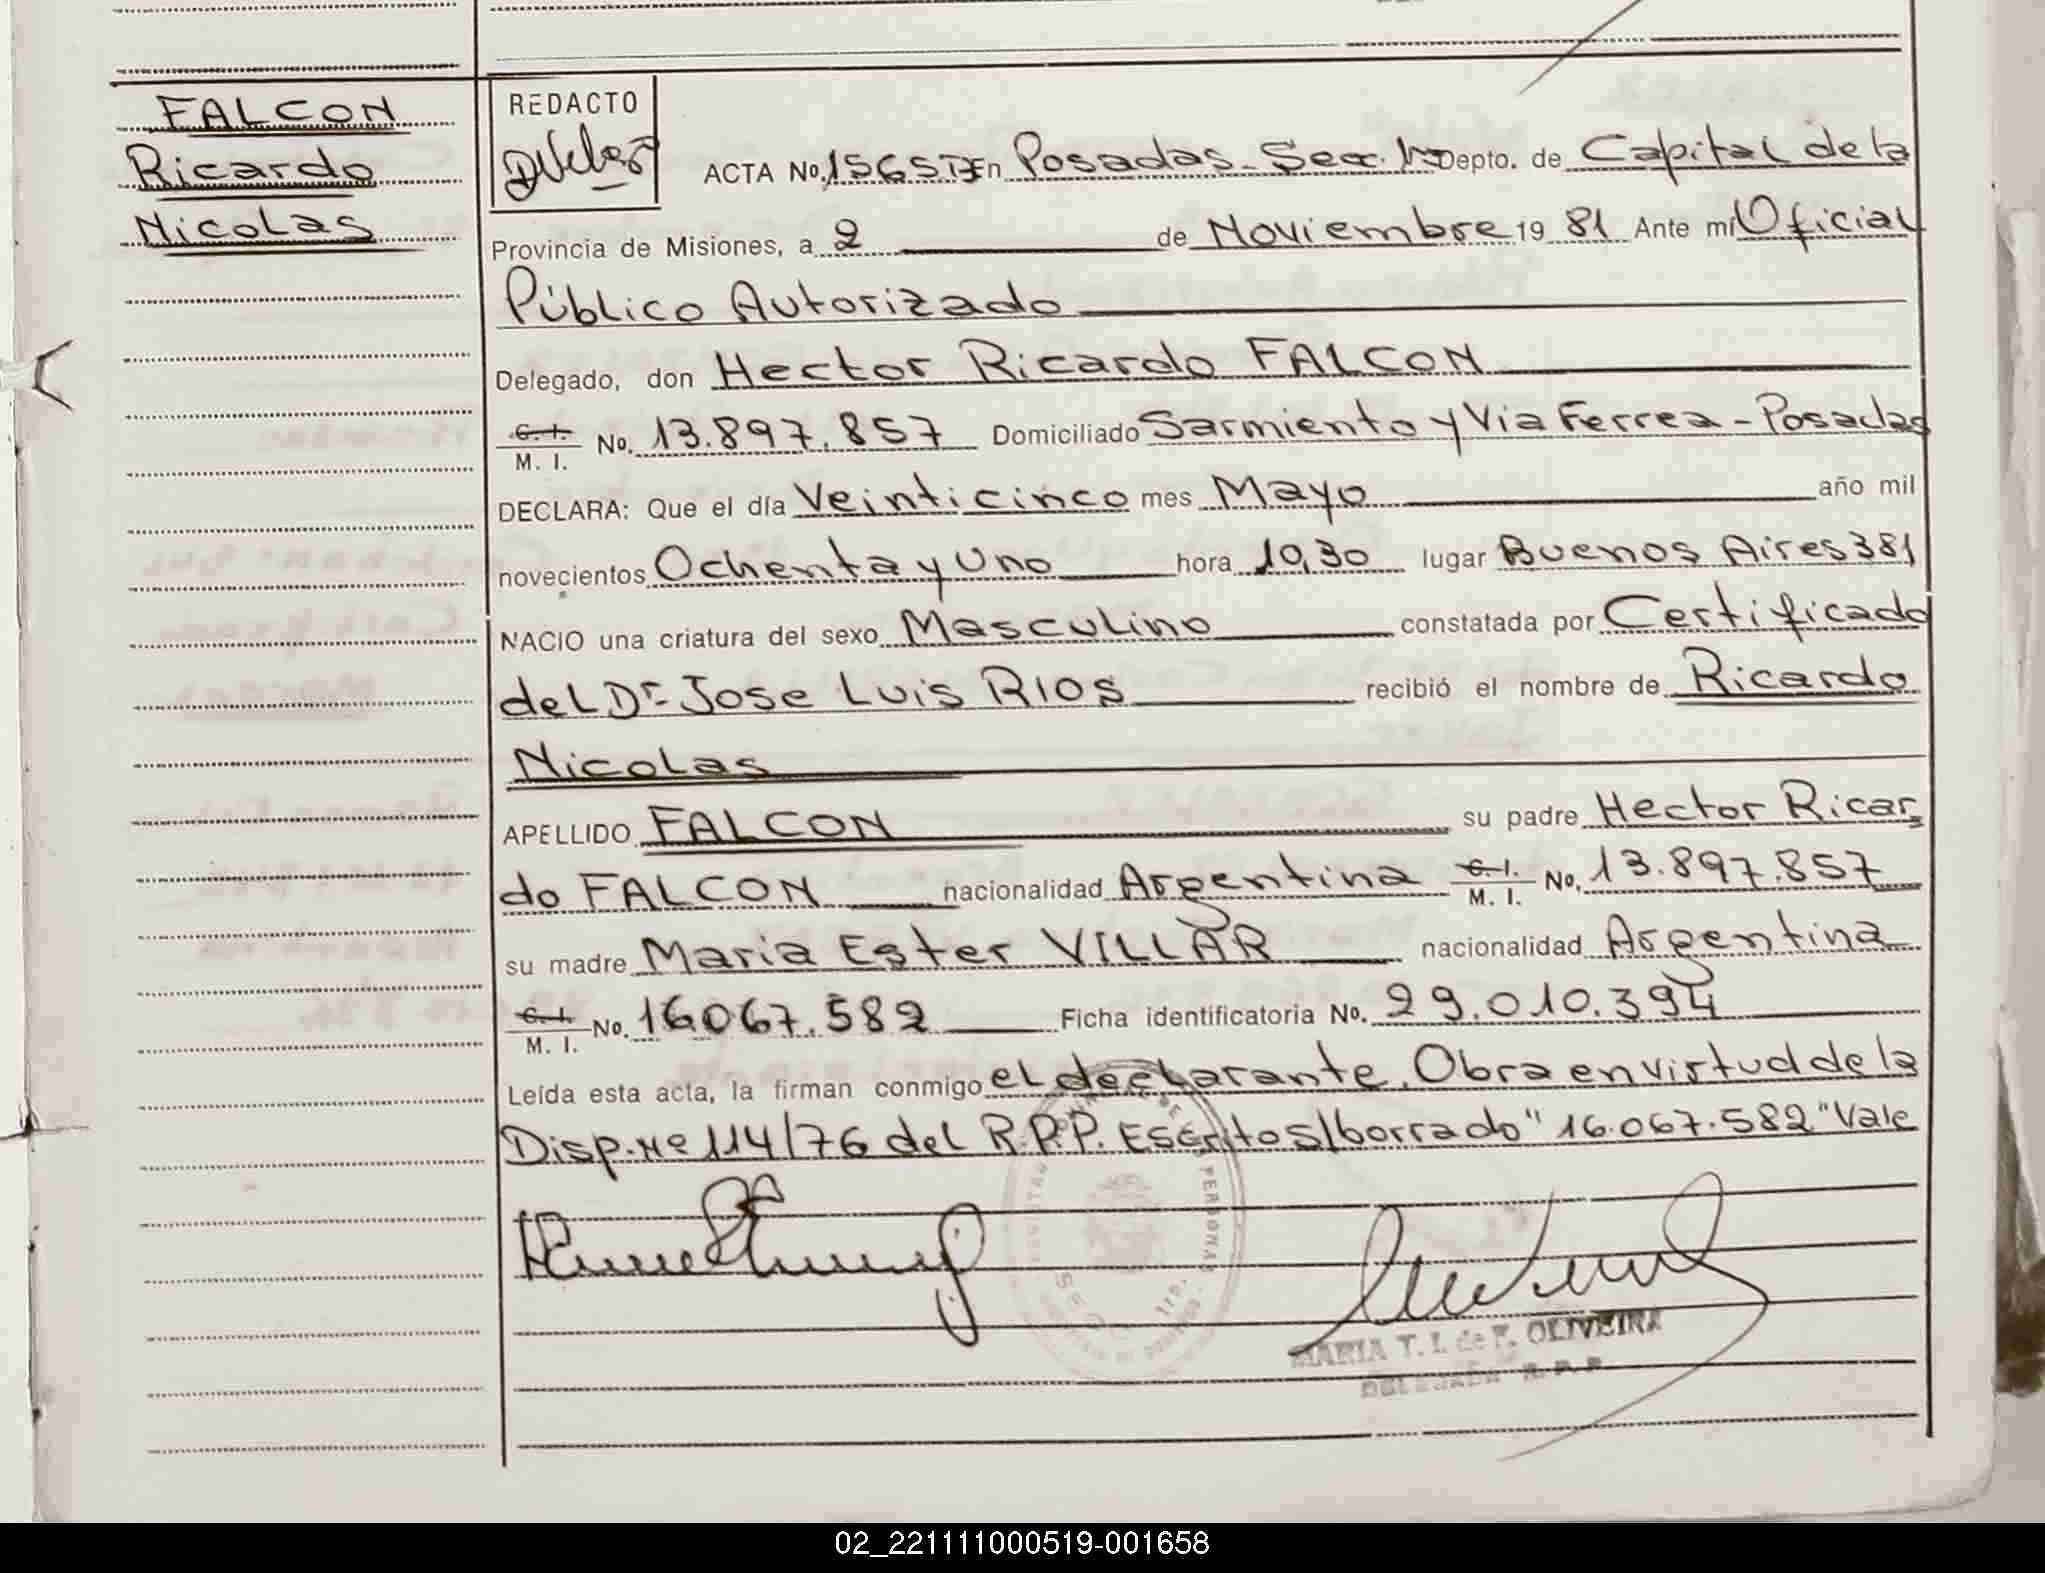 FALCON
Ricardo
Nicolas
REDACTO
ACTA No. 1565 En Posadas - Secc. Depto. de Capital de la
Provincia de Misiones, a 2 de Noviembre 19 81 Ante mí Oficial
Público Autorizado
Delegado, don Hector Ricardo FALCON
C. I. M. I. No. 13.897.857 Domiciliado Sarmiento y Via Ferrea - Posadas
DECLARA: Que el día Veinticinco mes Mayo año mil
novecientos Ochenta y Uno hora 10,30 lugar Buenos Aires 381
NACIO una criatura del sexo Masculino constatada por Certificado
del Dr. Jose Luis RIOS recibió el nombre de Ricardo
Nicolas
APELLIDO FALCON su padre Hector Ricar
do FALCON nacionalidad Argentina C. I. M. I. No. 13.897.857
su madre Maria Ester VILLAR nacionalidad Argentina
C. I. M. I. No. 16.067.582 Ficha identificatoria No. 29.010.394
Leída esta acta, la firman conmigo el declarante. Obra en virtud de la
Disp. Nº 114/76 del R.P.P. Escritos/borrado "16.067.582" Vale
MARIA T. I. de F. OLIVEIRA
DELEGADA R. P. P.
02_221111000519-001658